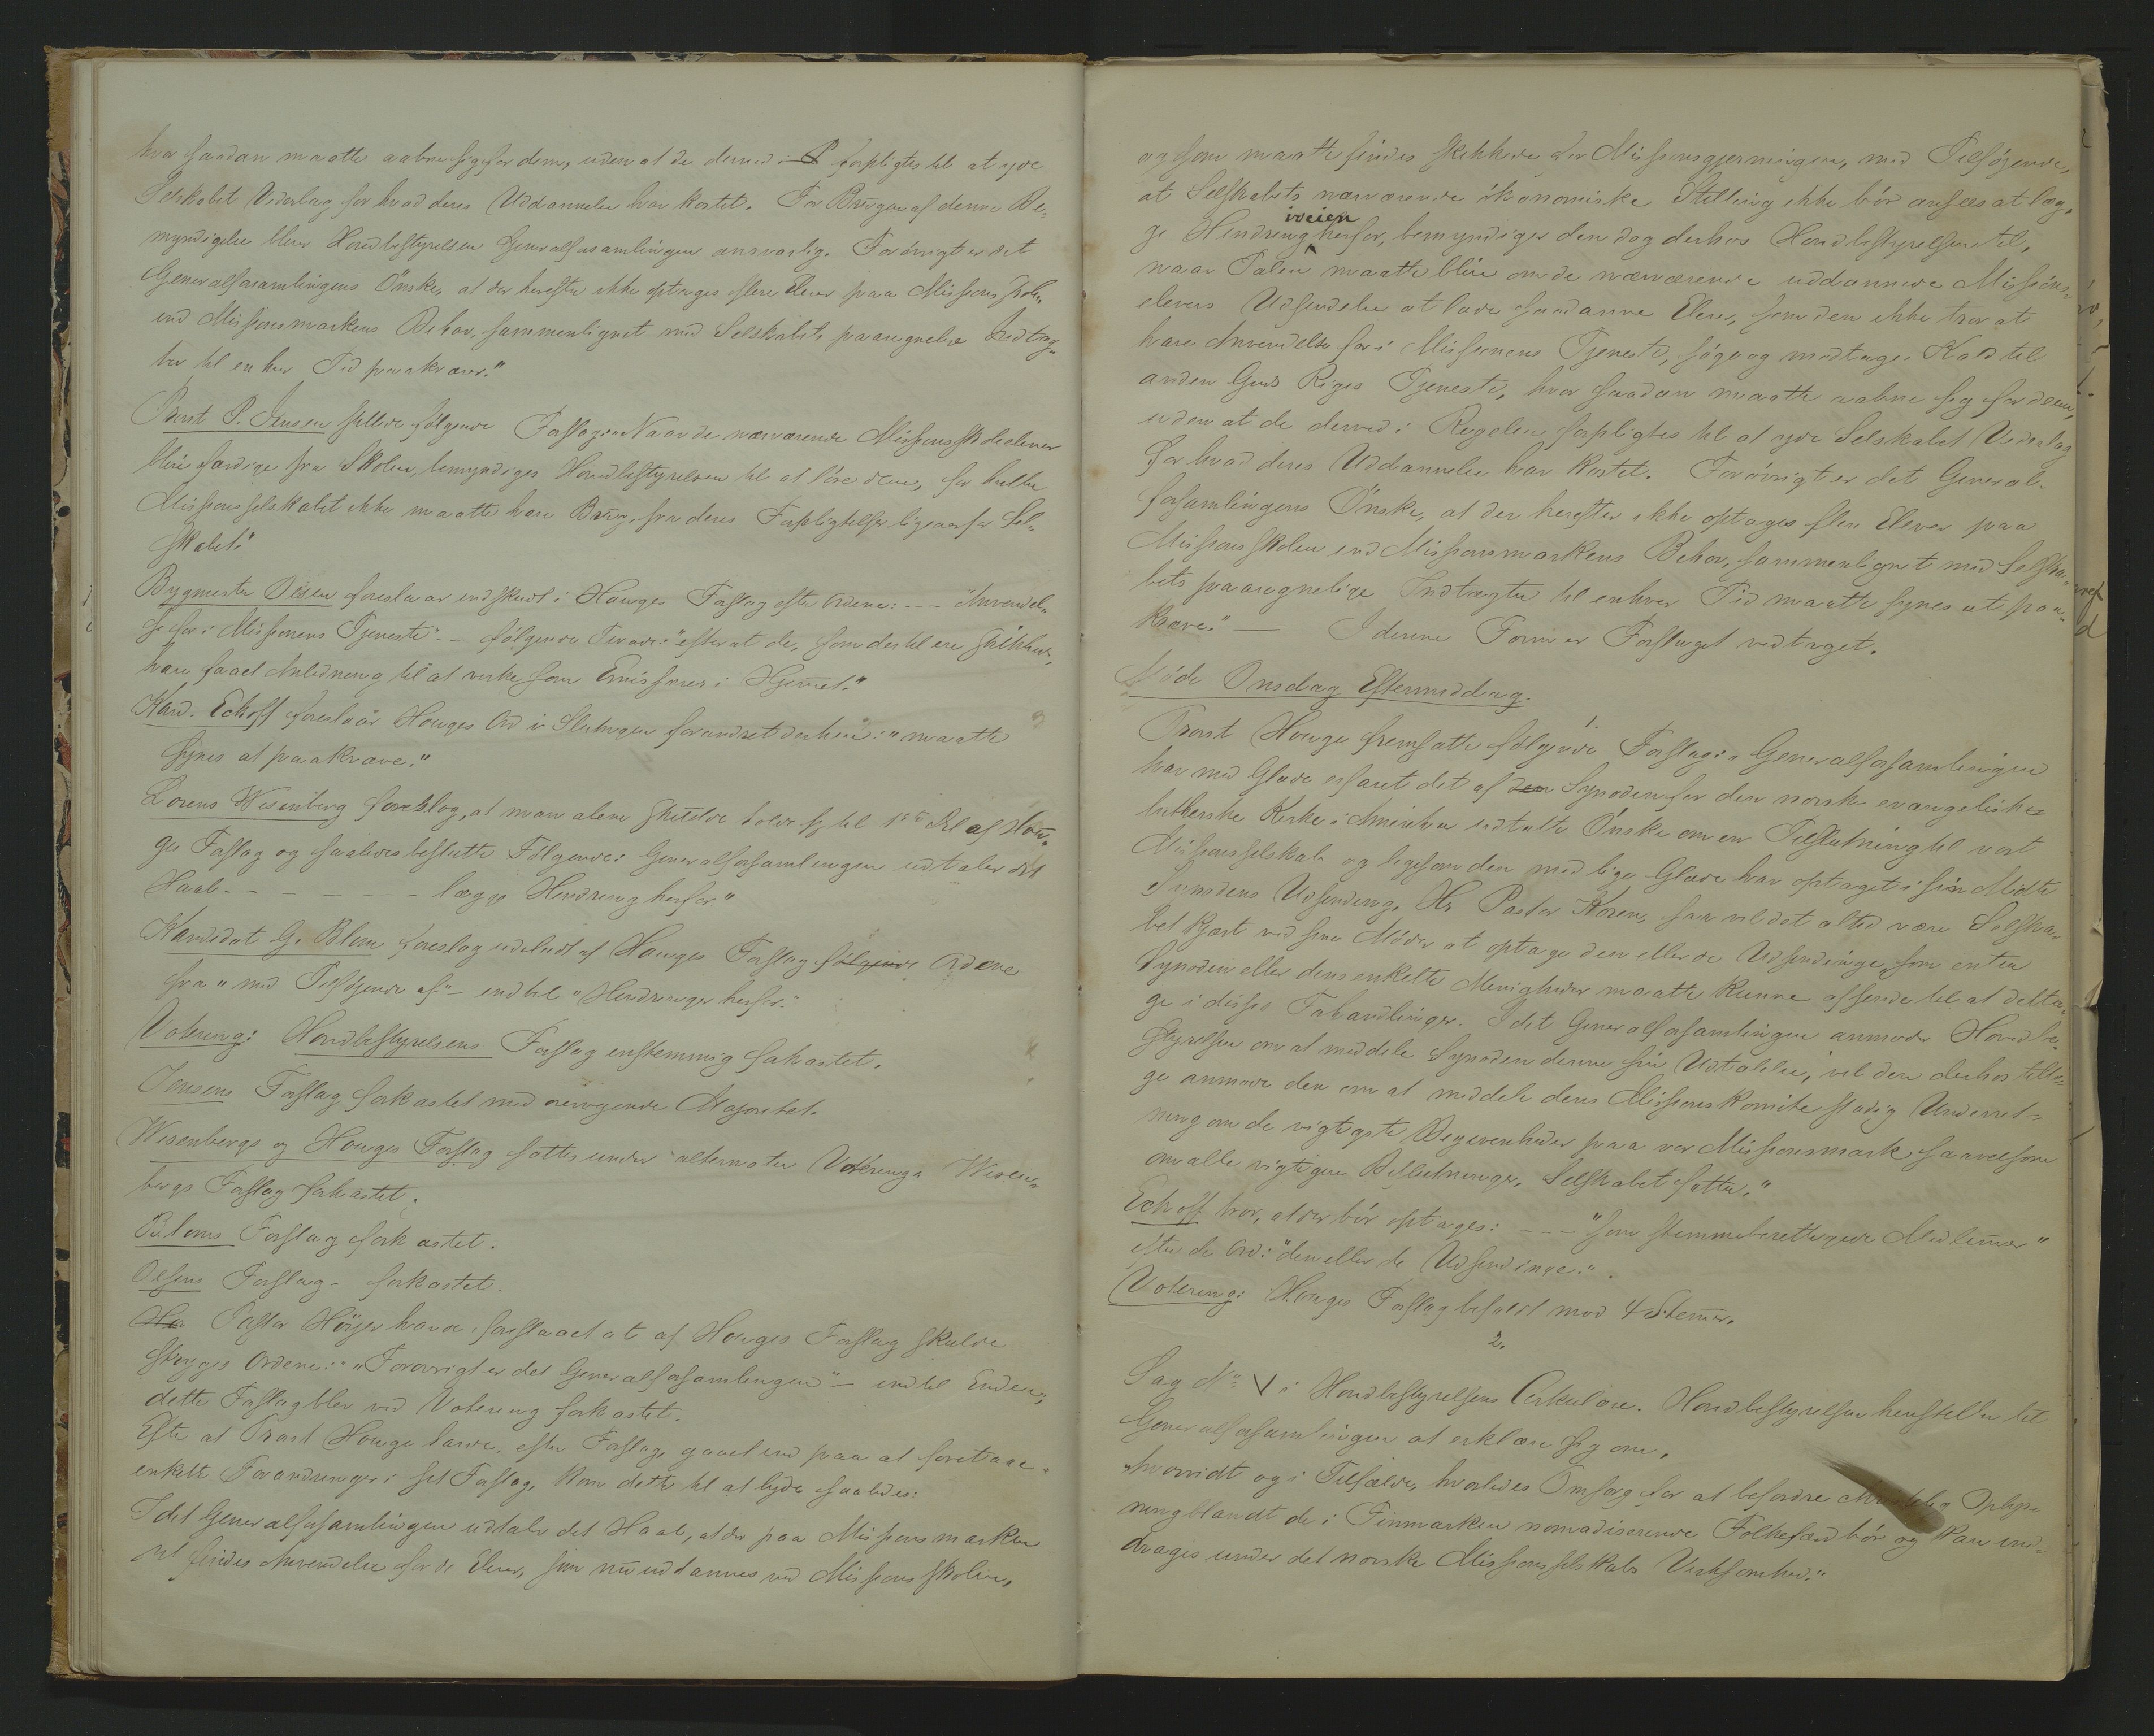 hvor saadan maatte aabne sig for dem, uden at de derved i forpligtes til at yde
Selskabet Vederlag for hvad deres Uddannelse har kostet. For Brugen af denne Be-
myndigelse bliver Hovedbestyrelsen Generalforsamlingen ansvarlig. Forövrigt er det
Generalforsamlingens Önske, at der herefter ikke optages flere Elever paa Missionsskolen,
end Missionsmarkens Behov, sammenlignet med Selskabets paaregnelige Indtæg-
ter til enhver Tid paakræver."
Provst P. Jensen stillede fölgende Forslag: "Naar de nærværende Missionsskoleelever
blive færdige fra Skolen, bemyndiges Hovedbestyrelsen til at löse dem, for hvilke
Missionsselskabet ikke maatte have Brug, fra deres Forpligtelser ligeoverfor Sel-
skabet."
Bygmester Olsen foreslaar indskudt i Houges Forslag efter Ordene: --- "Anvendel-
se for i Missionens Tjeneste" -- fölgende: "efter at de, som dertil ere skikkede,
have faaet Anledning til at virke som Emissærer i Hjemmet."
Kand. Eckoff foreslaar Houges Ord i Slutningen forandret derhen: "maatte
synes at paakræve."
Lorens Wesenberg foreslog, at man alene skulde holde sig til 1ste Del af Hou-
ges Forslag og saaledes beslutte Fölgende: Generalforsamlingen udtaler det
Haab - - - - - - - lægge Hindring herfor."
Kandidat G. Blom foreslog udeladt af Houges Forslag fölgende Ordene
fra "med Tilföiende af" - indtil "Hindringer herfor."
Votering: Hovedbestyrelsens Forslag enstemmig forkastet.
Jensens Forslag forkastet med overveiende Majoritet.
Wesenbergs og Houges Forslag sattes under alternativ Votering. Wesen-
bergs Forslag forkastet.
Bloms Forslag forkastet.
Olsens Forslag - forkastet.
Har Pastor Höyer havde foreslaaet at af Houges Forslag skulde
stryges Ordene: "Forövrigt er det Generalforsamlingen" - indtil Enden",
dette Forslag blev ved Votering forkastet.
Efter at Provst Houge havde, efter Forslag, gaaet ind paa at foretage
enkelte Forandringer i sit Forslag, kom dette til at lyde saaledes:
Idet Generalforsamlingen udtaler det Haab, at der paa Missionsmarken
vil findes Anvendelse for de Elever, som nu uddannes ved Missionsskolen,
og som maatte findes skikkede for Missionsgjerningen, med Tilföiende,
at Selskabets nærværende ökonomiske Stilling ikke bör ansees at læg-
ge Hindring iveien herfor, bemyndiger den dog derhos Hovedbestyrelsen til,
naar Talen maatte blive om de nærværende uddannede Missions-
elevers Udsendelse at lade saadanne Elever, som den ikke tror at
have Anvendelse for i Missionens Tjeneste, söge og modtage Kald til
anden Guds Riges Tjeneste, hvor saadan maatte aabne sig for dem,
uden at de derved i Regelen forpligtes til at yde Selskabet Vederlag
for hvad deres Uddannelse har kostet. Forövrigt er det General-
forsamlingens Önske, at der herefter ikke optages flere Elever paa
Missionsskolen end Missionsmarkens Behov, sammenlignet med Selska-
bets paaregnelige Indtægter til enhver Tid maatte synes at paa-
kræve." — I denne Form er Forslaget vedtaget.
Möde Onsdag Eftermiddag.
Provst Houge fremsatte fölgende Forslag: "Generalforsamlingen
har med Glæde erfaret det af den Synoden for den norske evangelisk-
lutherske Kirke i Amerika udtalte Önske om en Tilslutning til vort
Missionsselskab og ligesom den med lige Glæde har optaget i sin Midte
Synodens Udsending, Hr. Pastor Koren, saa vil det altid være Selska-
bet kjært ved sine Möder at optage den eller de Udsendinge, som enten
Synoden eller dens enkelte Menigheder maatte kunne afsende til at delta-
ge i disses Forhandlinger. Idet Generalforsamlingen anmoder Hovedbe-
styrelsen om at meddele Synoden denne sin Udtalelse, vil den derhos tillige
anmode den om at meddele dens Missionskomite stadig Underret-
ning om de vigtigste Begivenheder paa vor Missionsmark, saavelsom
om alle vigtigere Beslutninger, Selskabet fatter."
Eckoff tror, at der bör optages: --- "som stemmeberettigede Medlemmer"
efter de Ord: "den eller de Udsendinge."
Votering: Houges Forslag bifaldt mod 4 Stemmer.
2.
Sag No V i Hovedbestyrelsens Cirkulære. Hovedbestyrelsen henstiller til
Generalforsamlingen at erklære sig om,
"hvorvidt og i Tilfælde, hvorledes Omsorg for at befordre Oplys-
ning blandt de i Finmarken nomadiserende Folkefærd bör og kan ind-
drages under det norske Missionsselskabs Virksomhed."